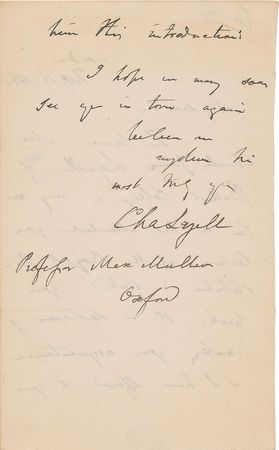 him this introduction
I hope we may soon
see you in town again
believe me
my dear Sir
most truly yrs
Cha Lyell
Professor Max Muller
Oxford